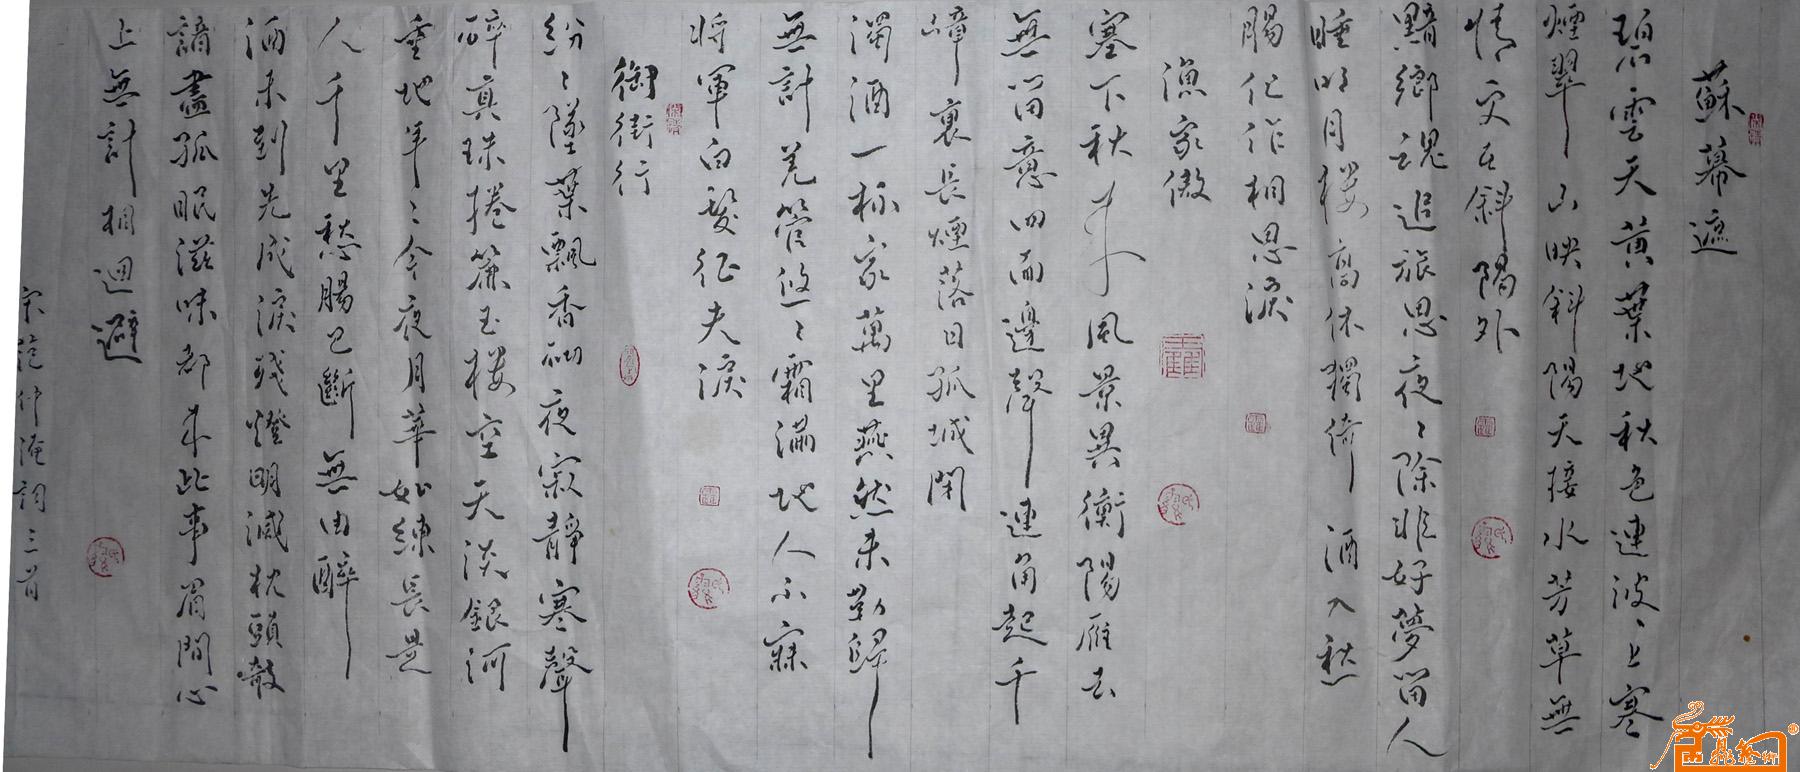 蘇幕遮
碧雲天黃葉地秋色連波〻上寒
煙翠山映斜陽天接水芳草無
情更在斜陽外
黯鄉魂追旅思夜〻除非好夢留人
睡明月樓高休獨倚酒入愁
腸化作相思淚
漁家傲
塞下秋來風景異衡陽雁去
無留意四面邊聲連角起千
嶂裏長煙落日孤城閉
濁酒一杯家萬里燕然未勒歸
無計羌管悠〻霜滿地人不寐
將軍白髮征夫淚
御街行
紛〻墜葉飄香砌夜寂靜寒聲
碎真珠捲簾玉樓空天淡銀河
垂地年〻今夜月華如練長是
人千里愁腸已斷無由醉
酒未到先成淚殘燈明滅枕頭欹
諳盡孤眠滋味都來此事眉間心
上無計相迴避
宋范仲淹詞三首